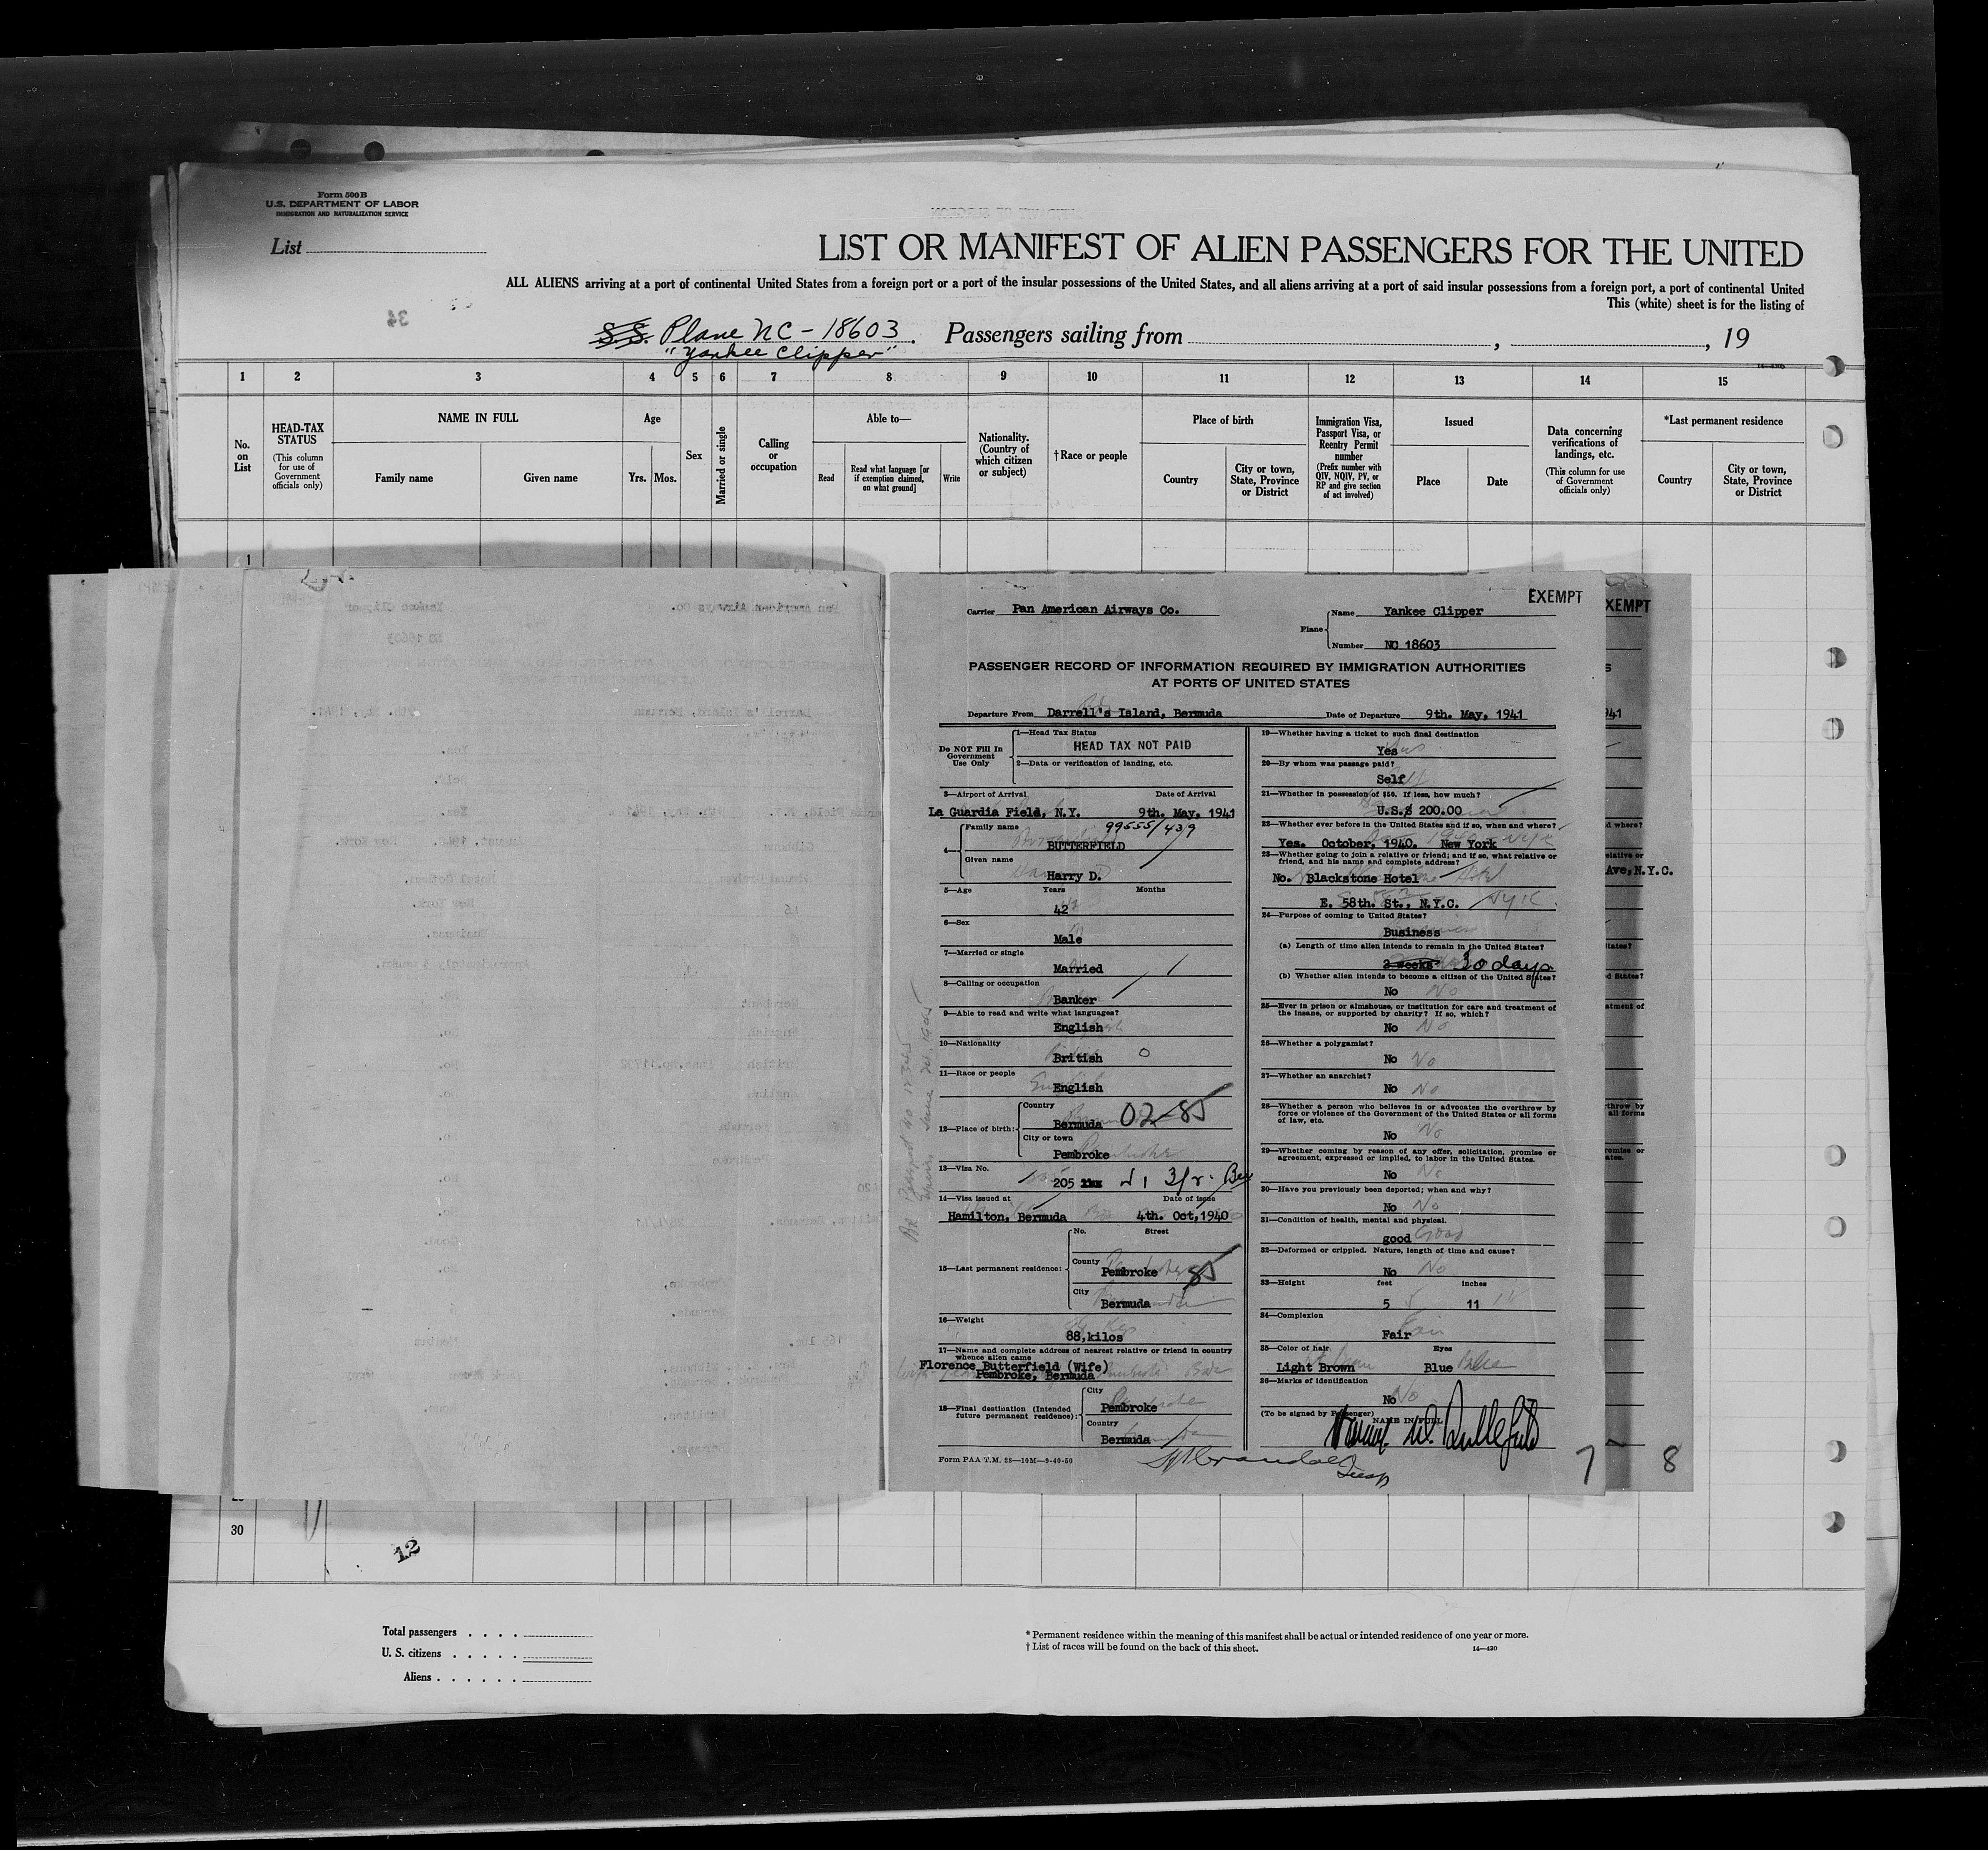 Form 500 B
U.S. DEPARTMENT OF LABOR
IMMIGRATION AND NATURALIZATION SERVICE
List
LIST OR MANIFEST OF ALIEN PASSENGERS FOR THE UNITED
ALL ALIENS arriving at a port of continental United States from a foreign port or a port of the insular possessions of the United States, and all aliens arriving at a port of said insular possessions from a foreign port, a port of continental United
This (white) sheet is for the listing of
34
S S Plane NC-18603. Passengers sailing from , , 19
"Yankee Clipper"
1 2 3 4 5 6 7 8 9 10 11 12 13 14 15
No. on List
HEAD-TAX STATUS
(This column for use of Government officials only)
NAME IN FULL
Family name Given name
Age
Yrs. Mos.
Sex
Married or single
Calling or occupation
Able to—
Read
Read what language [or if exemption claimed, on what ground]
Write
Nationality. (Country of which citizen or subject)
†Race or people
Place of birth
Country
City or town, State, Province or District
Immigration Visa, Passport Visa, or Reentry Permit number
(Prefix number with QIV, NQIV, PV, or RP and give section of act involved)
Issued
Place Date
Data concerning verifications of landings, etc.
(This column for use of Government officials only)
*Last permanent residence
Country
City or town, State, Province or District
1
EXEMPT
Carrier Pan American Airways Co.
Plane
Name Yankee Clipper
Number NC 18603
PASSENGER RECORD OF INFORMATION REQUIRED BY IMMIGRATION AUTHORITIES
AT PORTS OF UNITED STATES
Departure From Darrell's Island, Bermuda Date of Departure 9th. May, 1941
Do NOT Fill In Government Use Only
1—Head Tax Status
HEAD TAX NOT PAID
2—Data or verification of landing, etc.
3—Airport of Arrival Date of Arrival
La Guardia Field, N.Y. 9th. May, 1941
4—
Family name 99555/439
BUTTERFIELD
Given name
Harry D.
5—Age Years Months
42
6—Sex
Male
7—Married or single
Married
8—Calling or occupation
Banker
9—Able to read and write what languages?
English
10—Nationality
British
11—Race or people
English
12—Place of birth:
Country
Bermuda 02-85
City or town
Pembroke
13—Visa No.
205
14—Visa issued at Date of issue
Hamilton, Bermuda 4th. Oct, 1940
15—Last permanent residence:
No. Street
County
Pembroke 85
City
Bermuda
16—Weight
88, kilos
17—Name and complete address of nearest relative or friend in country whence alien came
Florence Butterfield (Wife)
Pembroke, Bermuda
18—Final destination (Intended future permanent residence):
City
Pembroke
Country
Bermuda
Form PAA T.M. 28—10M—9-40-50
19—Whether having a ticket to such final destination
Yes
20—By whom was passage paid?
Self
21—Whether in possession of $50. If less, how much?
U.S.$ 200.00
22—Whether ever before in the United States and if so, when and where?
Yes. October, 1940. New York
23—Whether going to join a relative or friend; and if so, what relative or friend, and his name and complete address?
No. Blackstone Hotel
E. 58th. St., N.Y.C.
24—Purpose of coming to United States?
Business
(a) Length of time alien intends to remain in the United States?
2 weeks 30 days
(b) Whether alien intends to become a citizen of the United States?
No No
25—Ever in prison or almshouse, or institution for care and treatment of the insane, or supported by charity? If so, which?
No No
26—Whether a polygamist?
No No
27—Whether an anarchist?
No No
28—Whether a person who believes in or advocates the overthrow by force or violence of the Government of the United States or all forms of law, etc.
No No
29—Whether coming by reason of any offer, solicitation, promise or agreement, expressed or implied, to labor in the United States.
No No
30—Have you previously been deported; when and why?
No No
31—Condition of health, mental and physical.
good Good
32—Deformed or crippled. Nature, length of time and cause?
No No
33—Height feet inches
5 11
34—Complexion
Fair
35—Color of hair Eyes
Light Brown Blue
36—Marks of identification
No No
(To be signed by Passenger)
NAME IN FULL
7
8
XEMPT
Ave, N.Y.C.
30
12
Total passengers
U. S. citizens
Aliens
* Permanent residence within the meaning of this manifest shall be actual or intended residence of one year or more.
† List of races will be found on the back of this sheet. 14—420